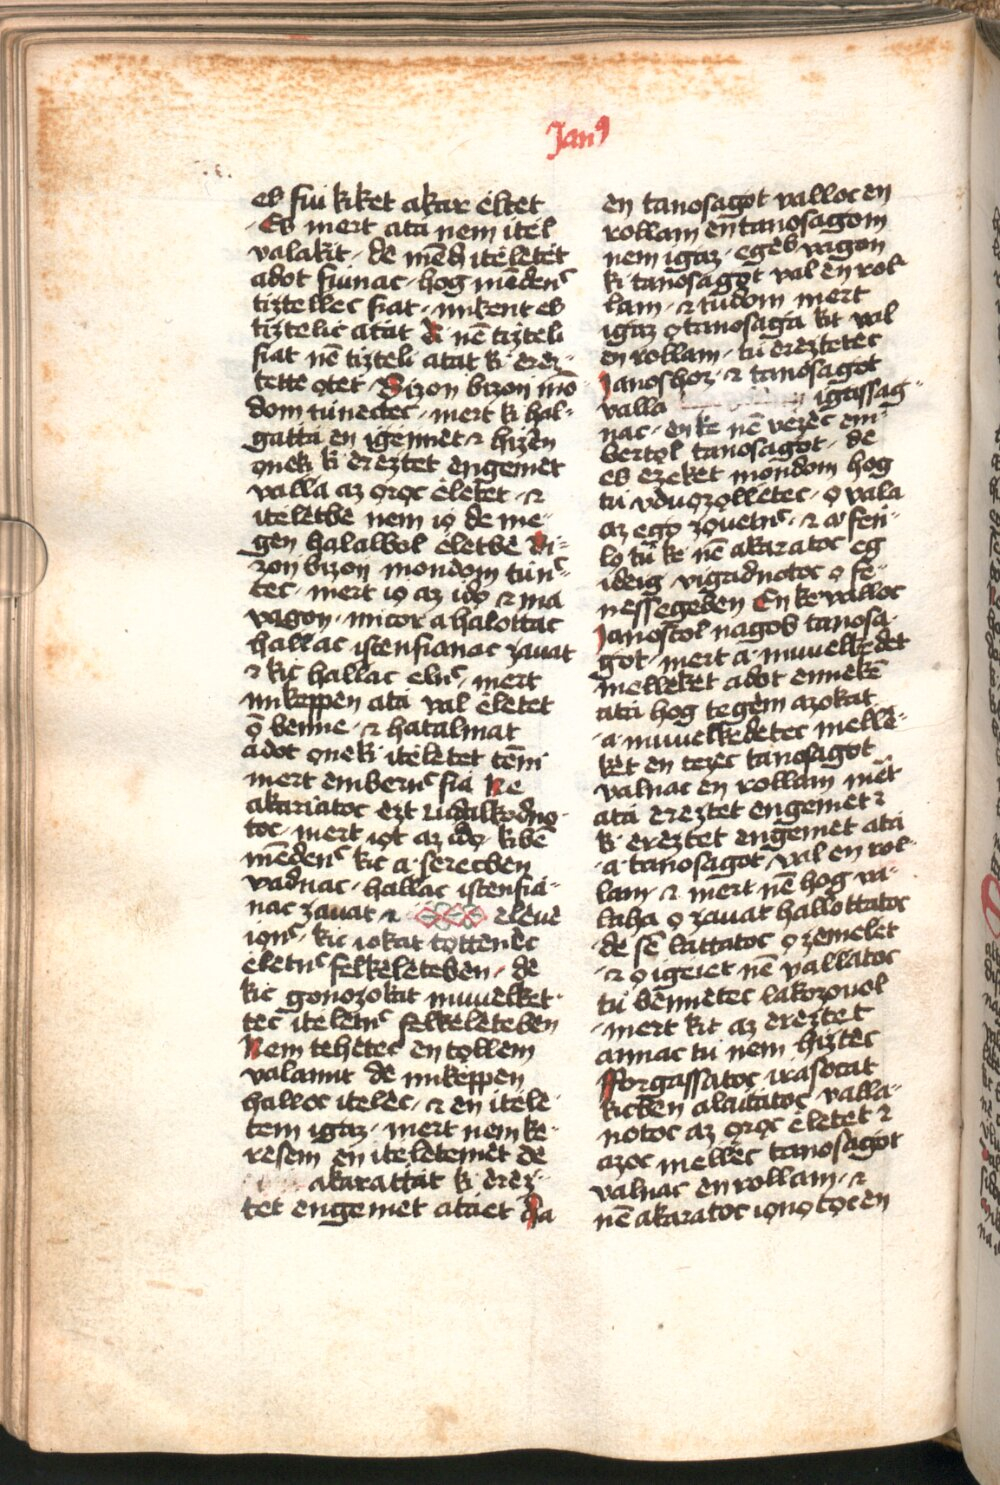 Janꝰ
es fiu kiket akar eltet
Es mert ata nem itel
valakit · de mēdē itèletèt
adot fiunac · hog mēdenc
tiztellèc fiat · mikent es
tiztelic atat & nē tizteli
fiat nē tizteli atat ki èrèz⸗
tètte ọtèt · Bizon bizon mō
dom tunectèc · mert ki hal⸗
gatta en igèimèt · & hizen
ọnèki ki èrèztet engemèt
valla az ọrọc èlètèt · &
itèlètbè nem iọ de me⸗
gèn halalbol èlètbè Bi⸗
zon bizon mondom tūnc⸗
tèc · mert iọ az idọ & ma
vagon · micor a halottac
hallac istenfianac zauat
& kic hallac èlnc · mert
mikèppèn ata val èlètèt
ō benne · & hatalmat
adot ọnèki itèlètèt tènni
mert embernc fia Ne
akariatoc ezt čudalkodno⸗
toc · mert iọt az idọ kibè
mēdenc kic a · serecben
vadnac · hallac istenfia⸗
nac zauat & eleue
iọnc · kic iokat tòttènèc
èlètnc fèlkèlètèben · de
kic gonozokat miuèlkèt⸗
tèc itèlètnc fèlkèlètèben
Nem tehètèc en tọllem
valamit de mikèppèn
halloc itèlèc · & en itèlè⸗
tem igaz · mert nem ke⸗
rèsem en itèlètemèt de
akarattat ki èrèz⸗
tèt engemèt ataèt Ha
en tanosagot valloc en
rollam en tanosagom
nem igaz · egèb vagon
ki tanosagot val èn rol⸗
lam · & tudom mert
igaz ọ tanosaga kit val
en rollam · ti èrèztètèc
Janoshoz · & tanosagot
valla igassag⸗
nac · en kè nē vezèc em⸗
bertọl tanosagot · de
es ezekèt mondom hog
ti vduọzọllètèc · ọ vala
az egọ zọuetnc · & a fèn⸗
lọ ti kè nē akaratoc eg
ideig · vigadnotoc ọ fè⸗
nèssegeben En kè valloc
Janostol nagob tanosa⸗
got · mert a · miuèlkèdèt
mellèkèt adot ennèkē
ata hog tegem azokat
a · miuèlkèdètèc mellè⸗
kèt en tèzèc tanosagot
valnac en rollam mèt
ata èrèztèt engemèt &
ki èrèztèt engemèt ata
a · tanosagot · val en rol⸗
lam · & mert nē hog va⸗
laha ọ zauat hallottatoc
de sē lattatoc ọ zemèlèt
& ọ igèiet nē vallatoc
ti bènnètèc lakozuol
mert kit az èrèztèt
annac ti nem hiztèc
Forgassatoc irasocat
kicben alaitatoc valla⸗
notoc az ọrọc èlètèt &
azoc mellèc tanosagot
valnac en rollam · &
nē akaratoc iọnọtọc en